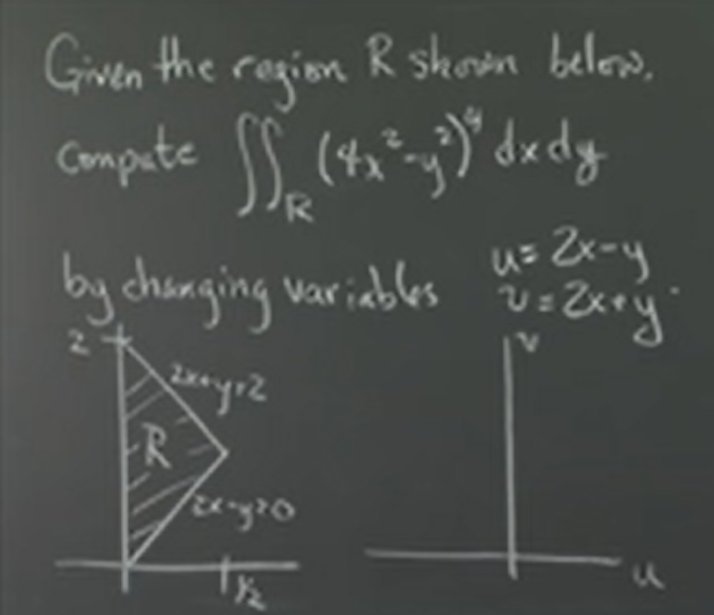 Given the region R shown below.
compute ∬_R (4x²-y²)⁴ dxdy
by changing variables
u = 2x-y
v = 2x+y.
2
2x+y=2
R
2x-y=0
1/2
v
u